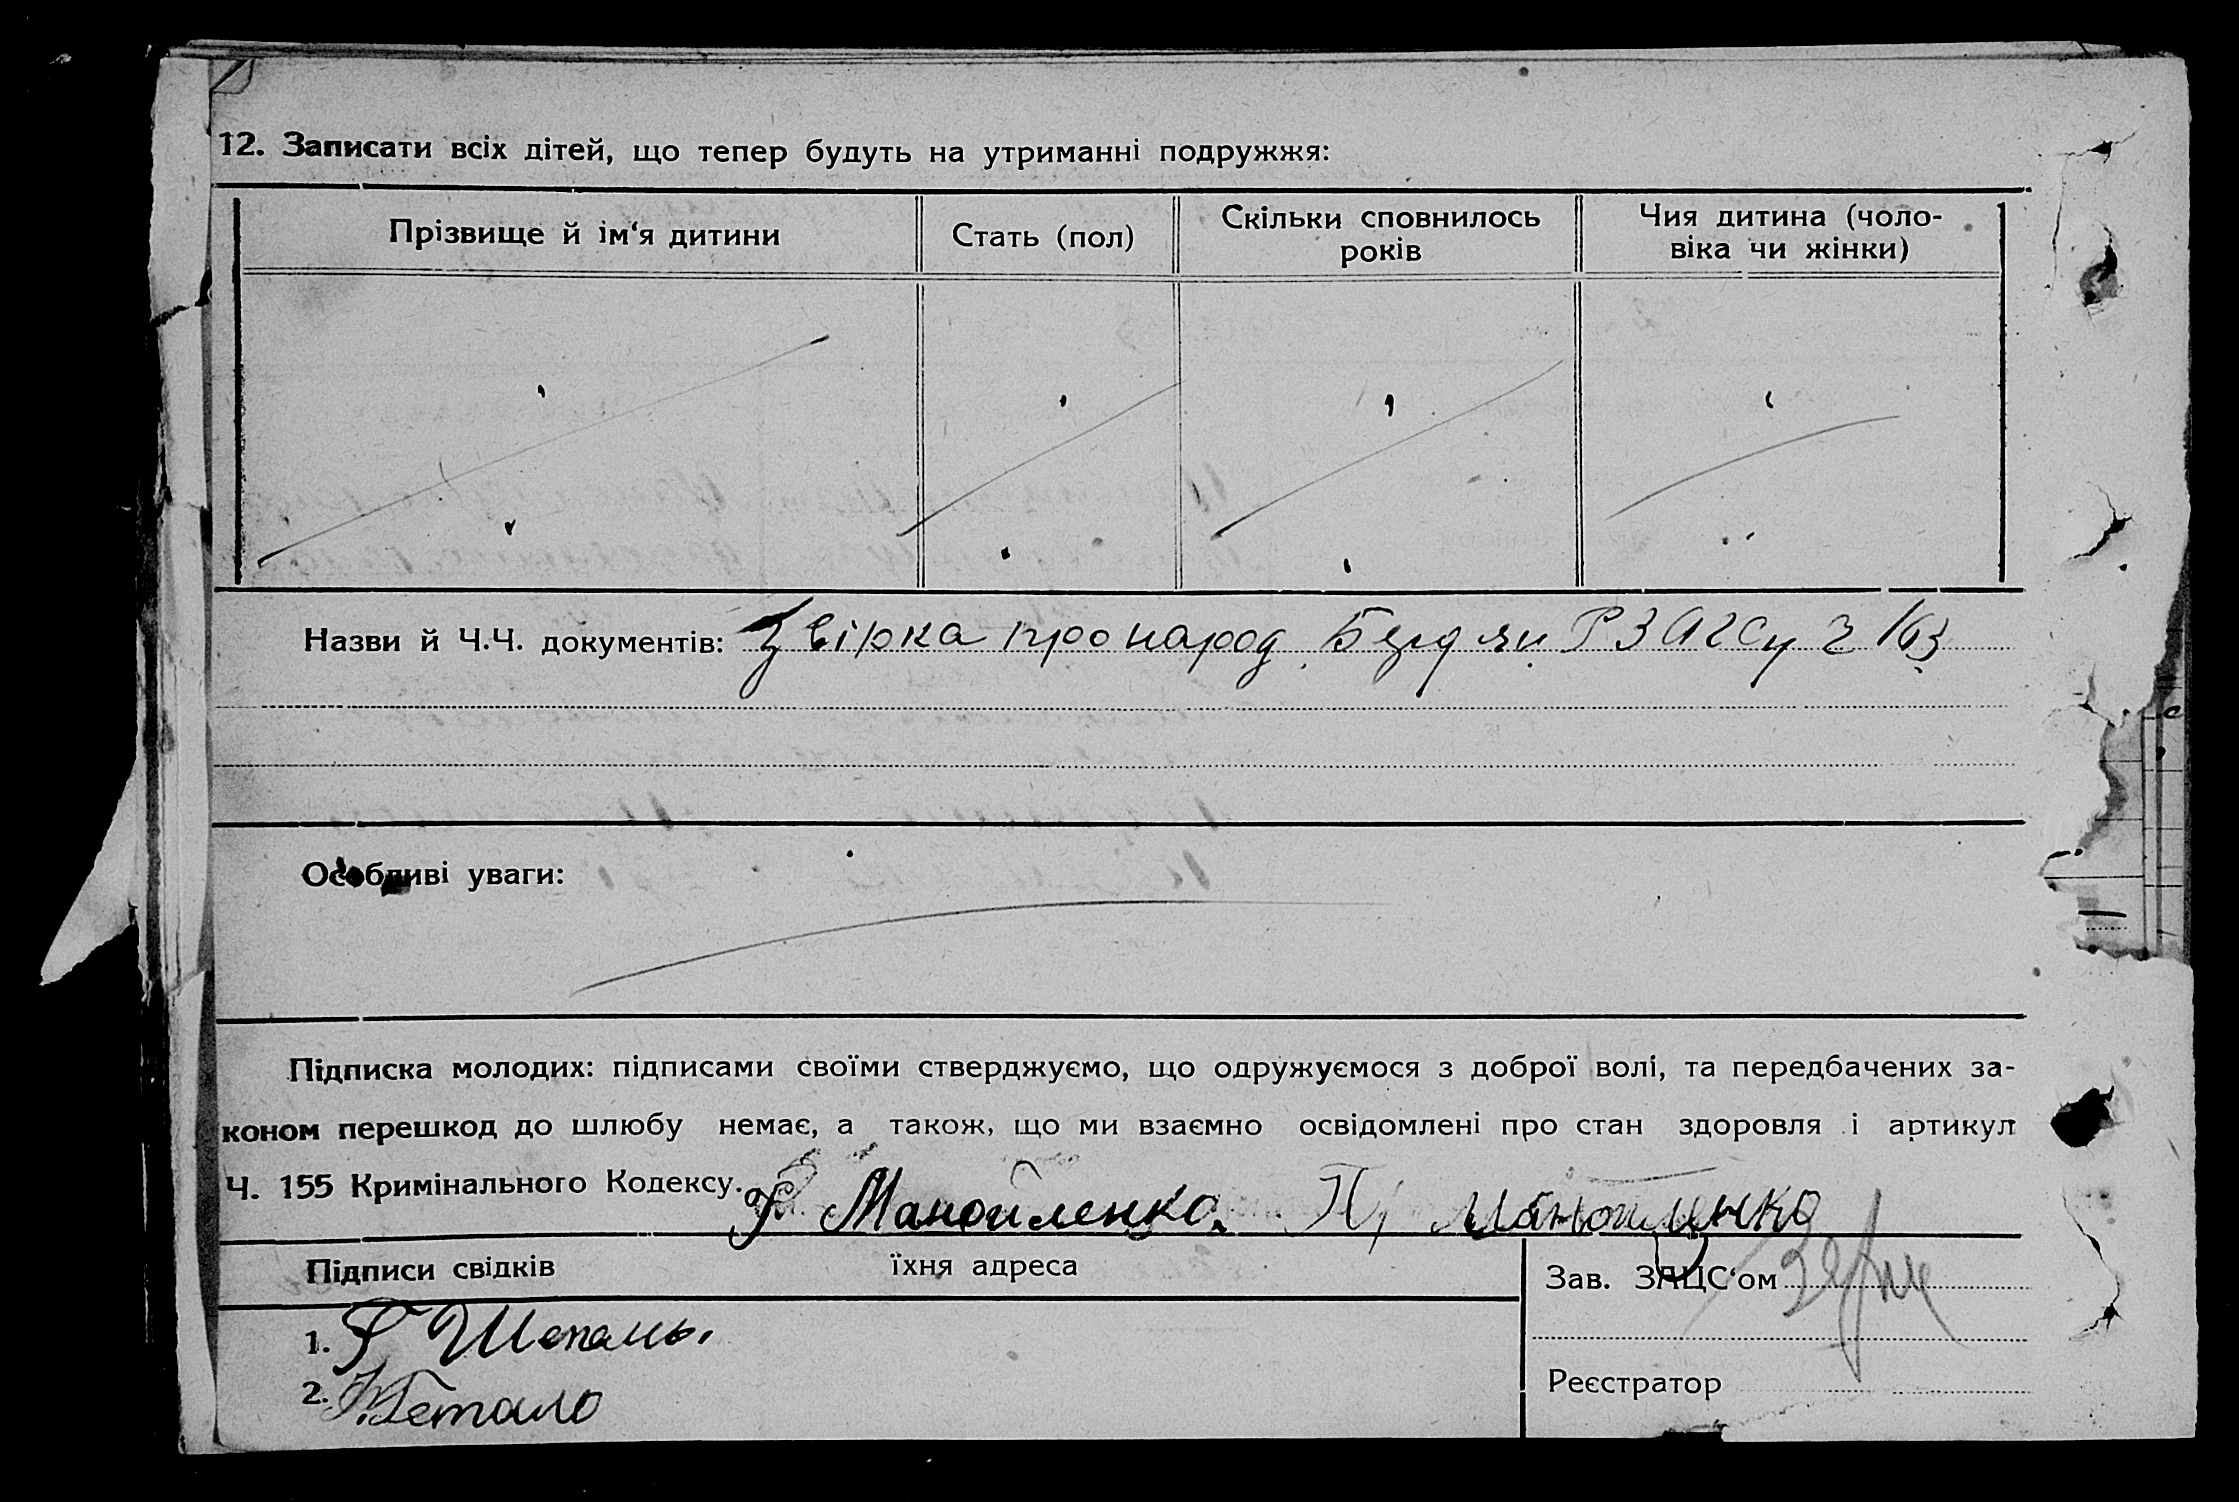 12. Записати всіх дітей, що тепер будуть на утриманні подружжя:
Прізвище й ім‘я дитини
Стать (пол)
Скільки сповнилось
років
Чия дитина (чоло-
віка чи жінки)
Назви й Ч.Ч. документів: Звірка про народ
Особливі уваги:
Підписка молодих: підписами своїми стверджуємо, що одружуємося з доброї волі, та передбачених за-
коном перешкод до шлюбу немає, а також, що ми взаємно освідомлені про стан здоровля і артикул
Ч. 155 Кримінального Кодексу.
Манойленко. Манойленко
Підписи свідків їхня адреса
Зав. ЗАЦС‘ом
1.
2.
Реєстратор